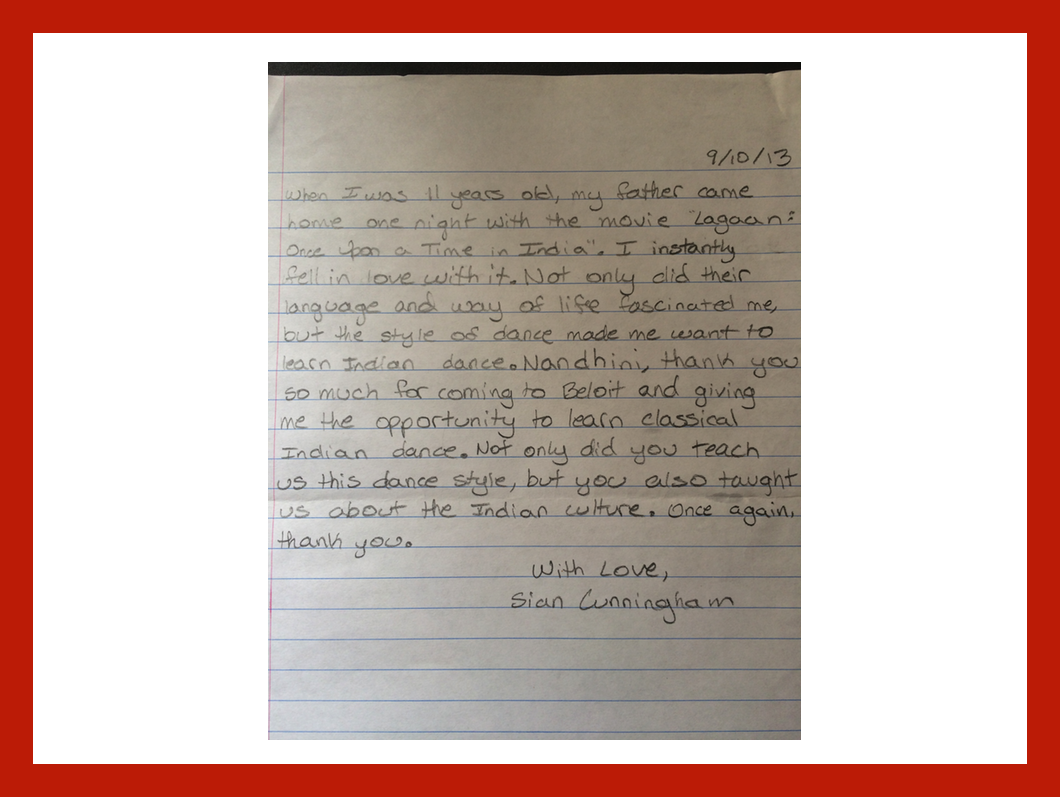 9/10/13
When I was 11 years old, my father came
home one night with the movie "Lagaan:
Once Upon a Time in India". I instantly
fell in love with it. Not only did their
language and way of life fascinated me,
but the style of dance made me want to
learn Indian dance. Nandhini, thank you
so much for coming to Beloit and giving
me the opportunity to learn classical
Indian dance. Not only did you teach
us this dance style, but you also taught
us about the Indian culture. Once again,
thank you.
With Love,
Sian Cunningham